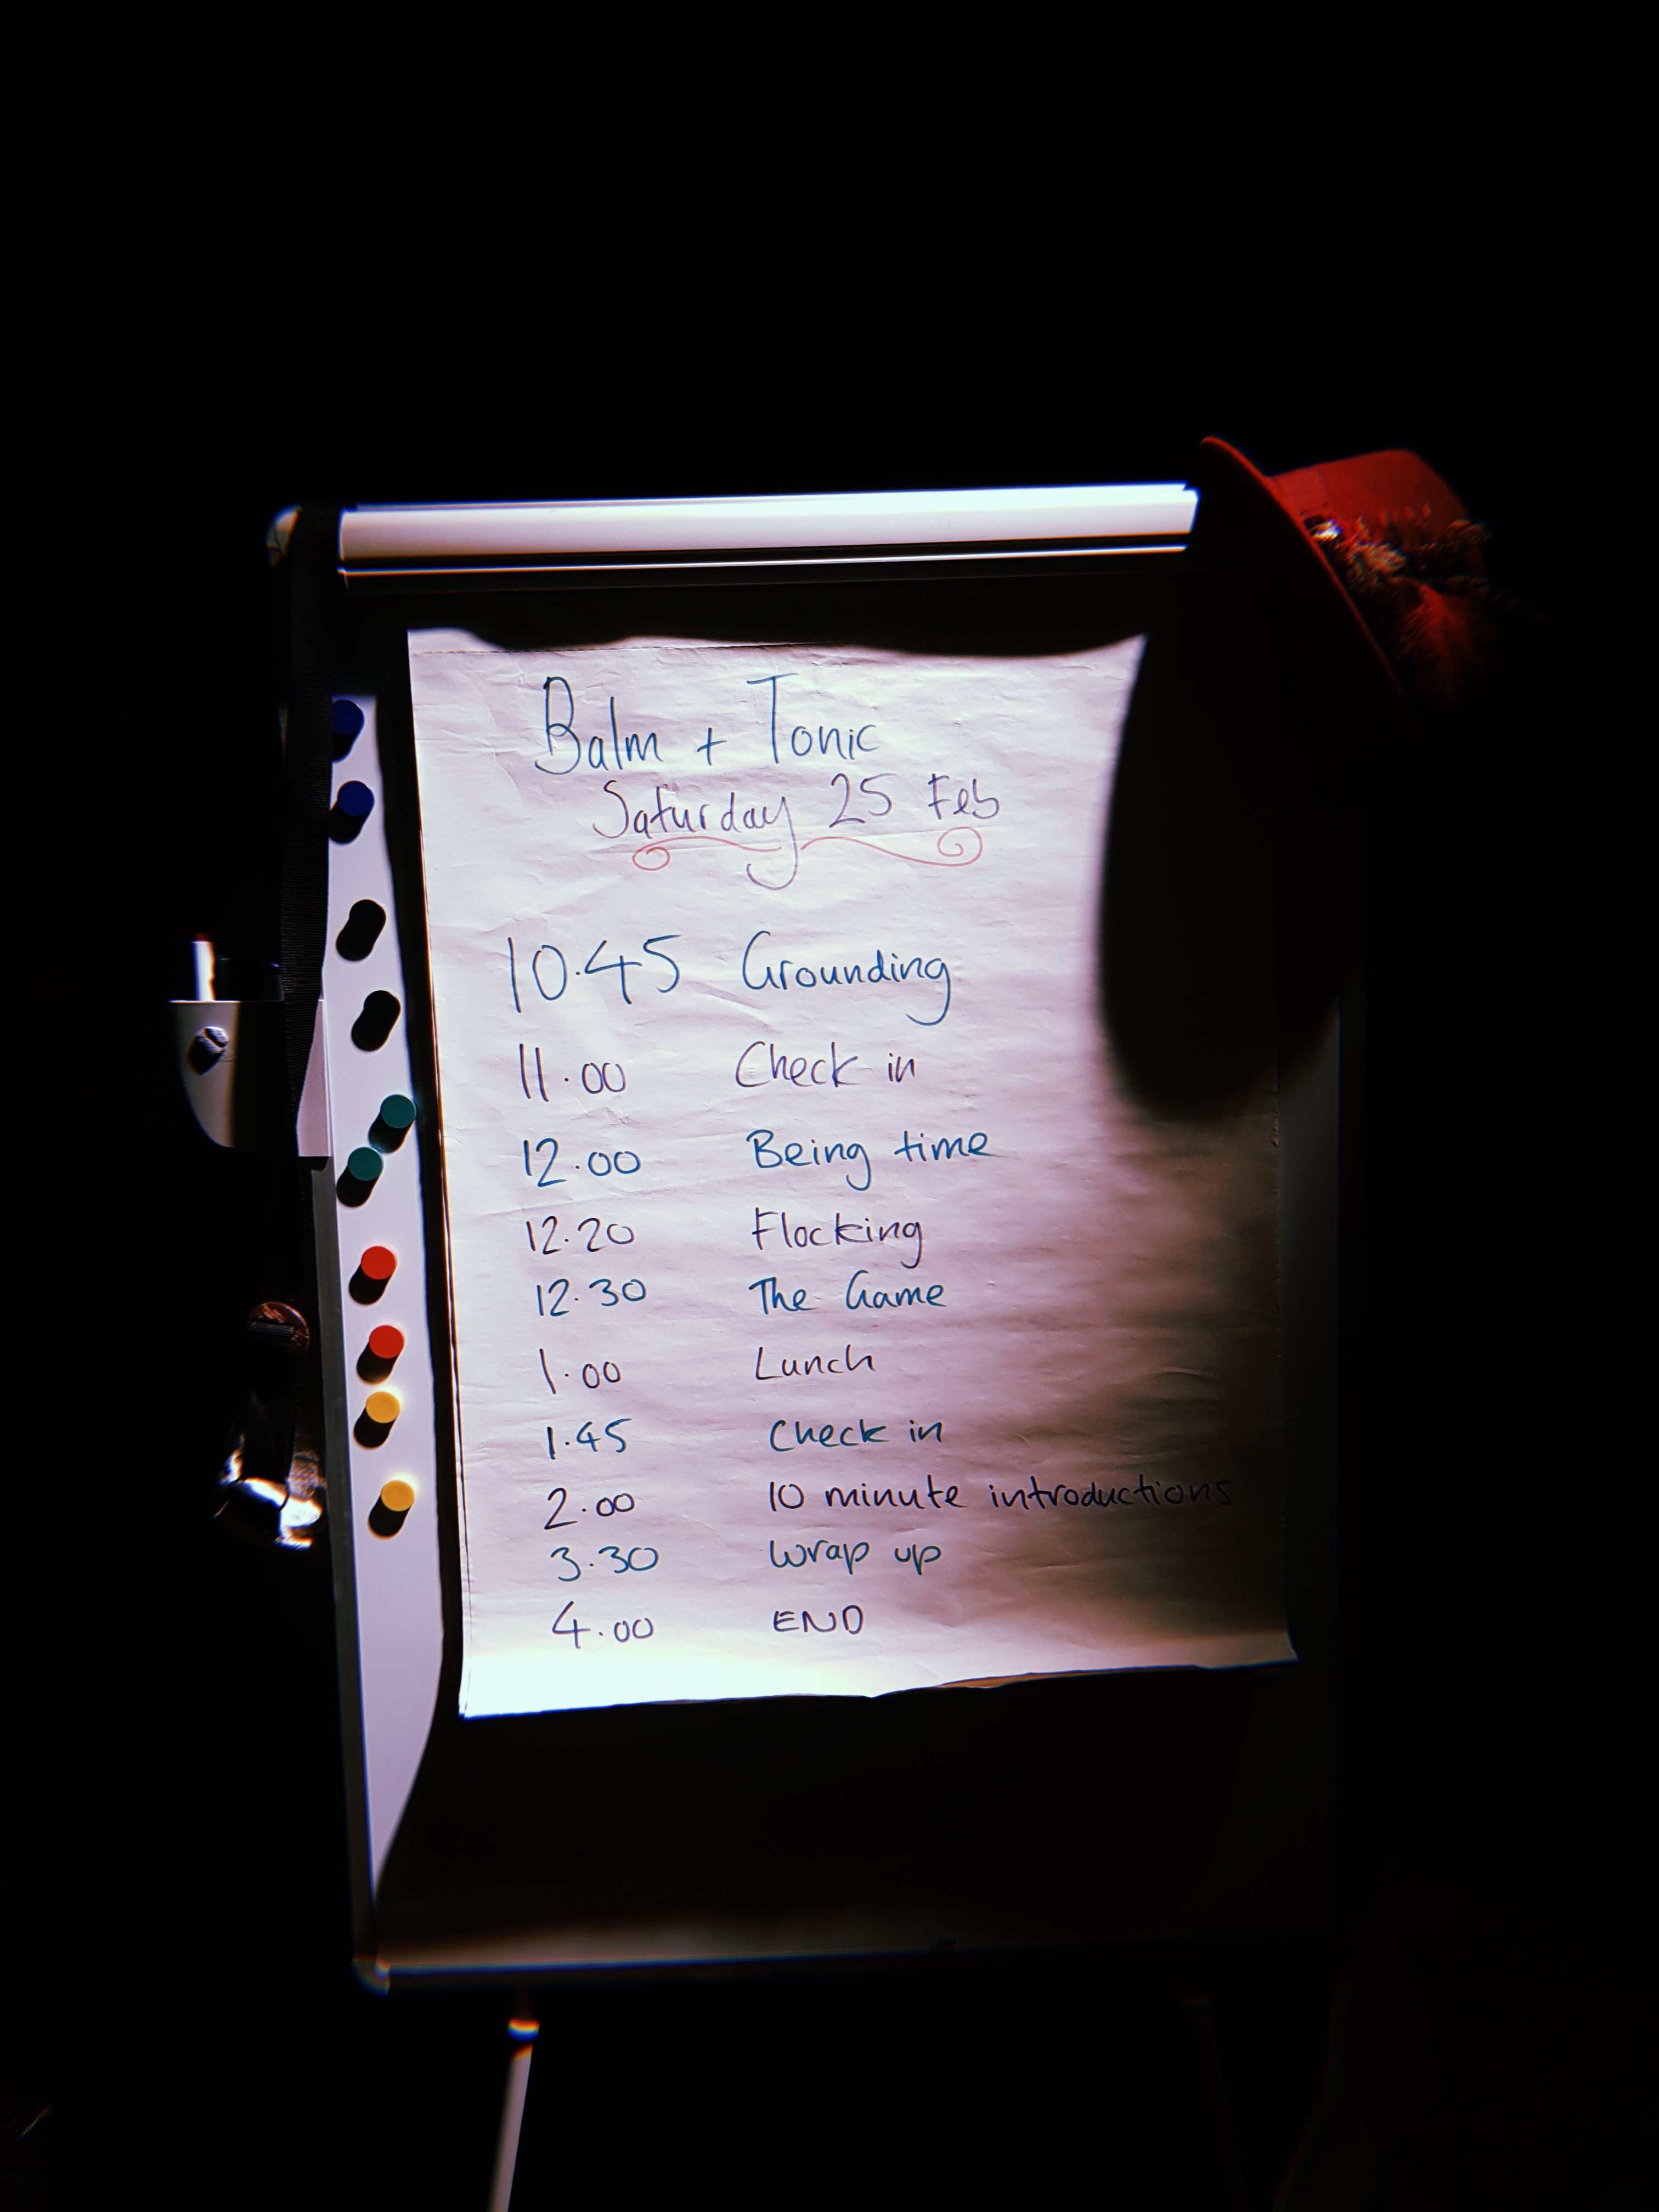 Balm + Tonic
Saturday 25 Feb
10.45 Grounding
11.00 Check in
12.00 Being time
12.20 Flocking
12.30 The Game
1.00 Lunch
1.45 Check in
2.00 10 minute introductions
3.30 Wrap up
4.00 END